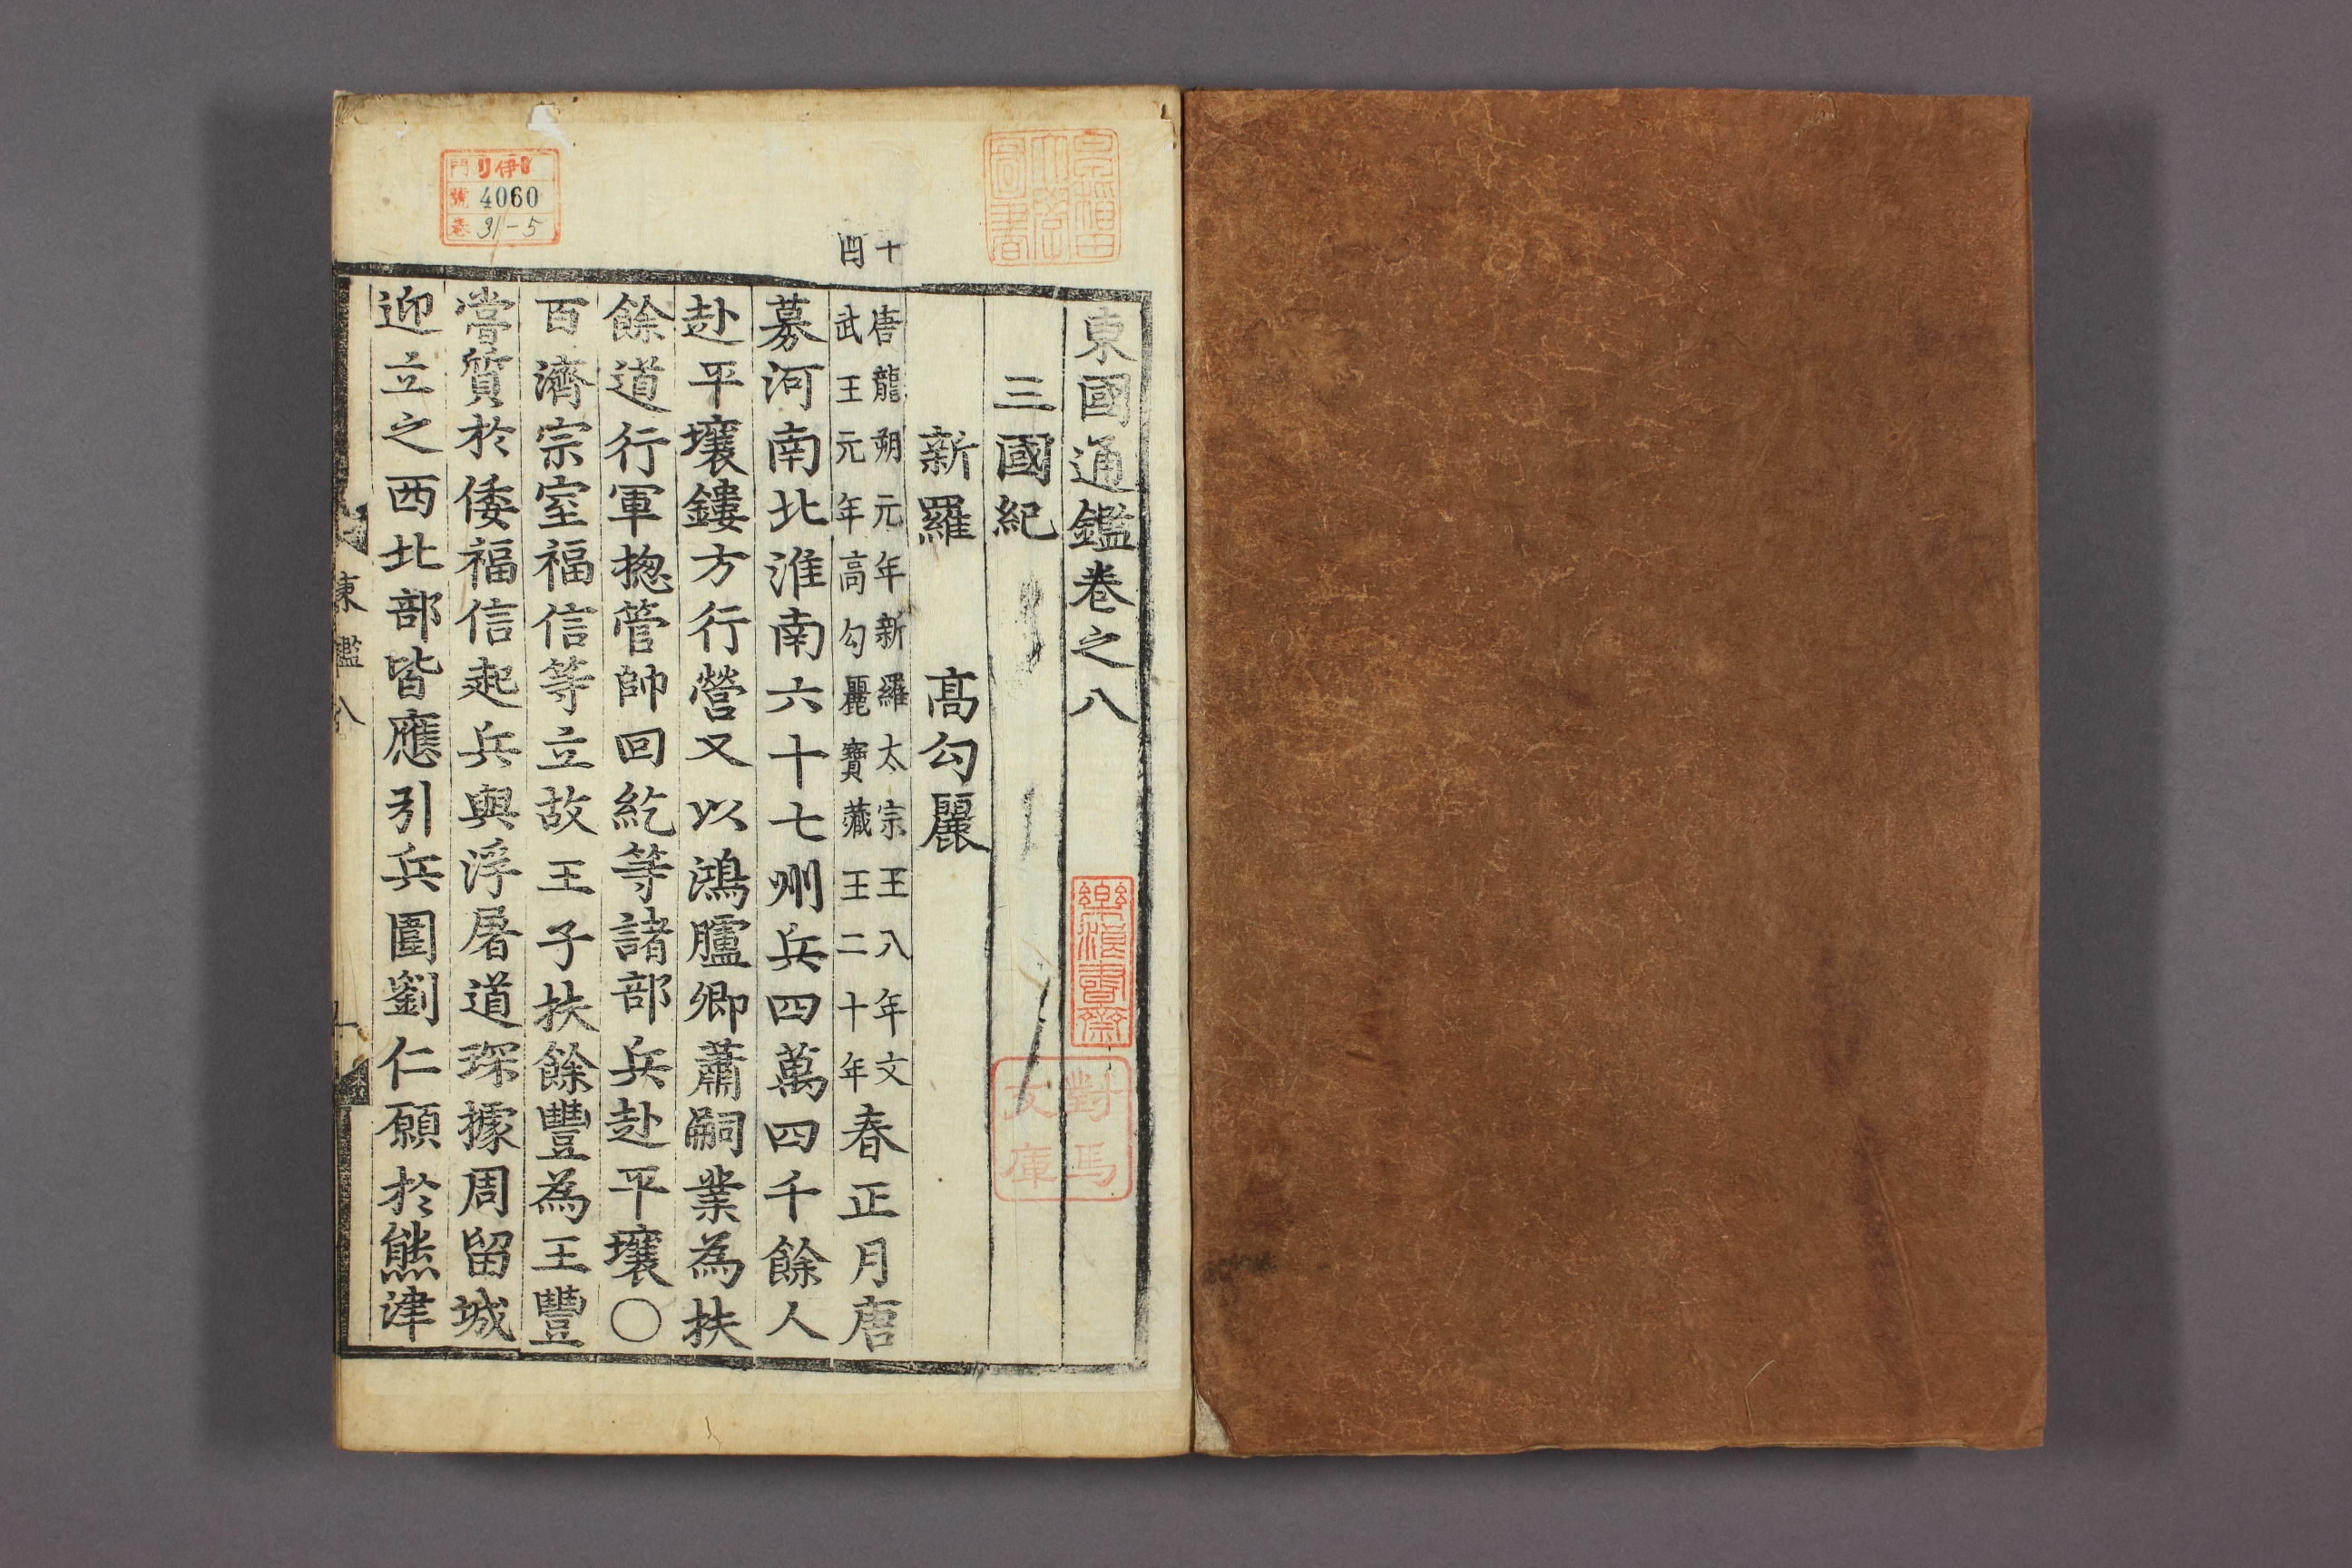 東國通鑑卷之八
三國紀
新羅 高勾麗
唐龍朔元年新羅太宗王八年文
武王元年高勾麗寶藏王二十年
春正月唐
募河南北淮南六十七州兵四萬四千餘人
赴平壤鏤方行營又以鴻臚卿蕭嗣業為扶
餘道行軍摠管帥回紇等諸部兵赴平壤〇
百濟宗室福信等立故王子扶餘豐為王豐
嘗質於倭福信起兵與浮屠道琛據周留城
迎立之西北部皆應引兵圍劉仁願於熊津
東鑑八
早稲田大學圖書
樂浪書齋
對馬文庫
門 リ伊
號 4060
卷 31-5